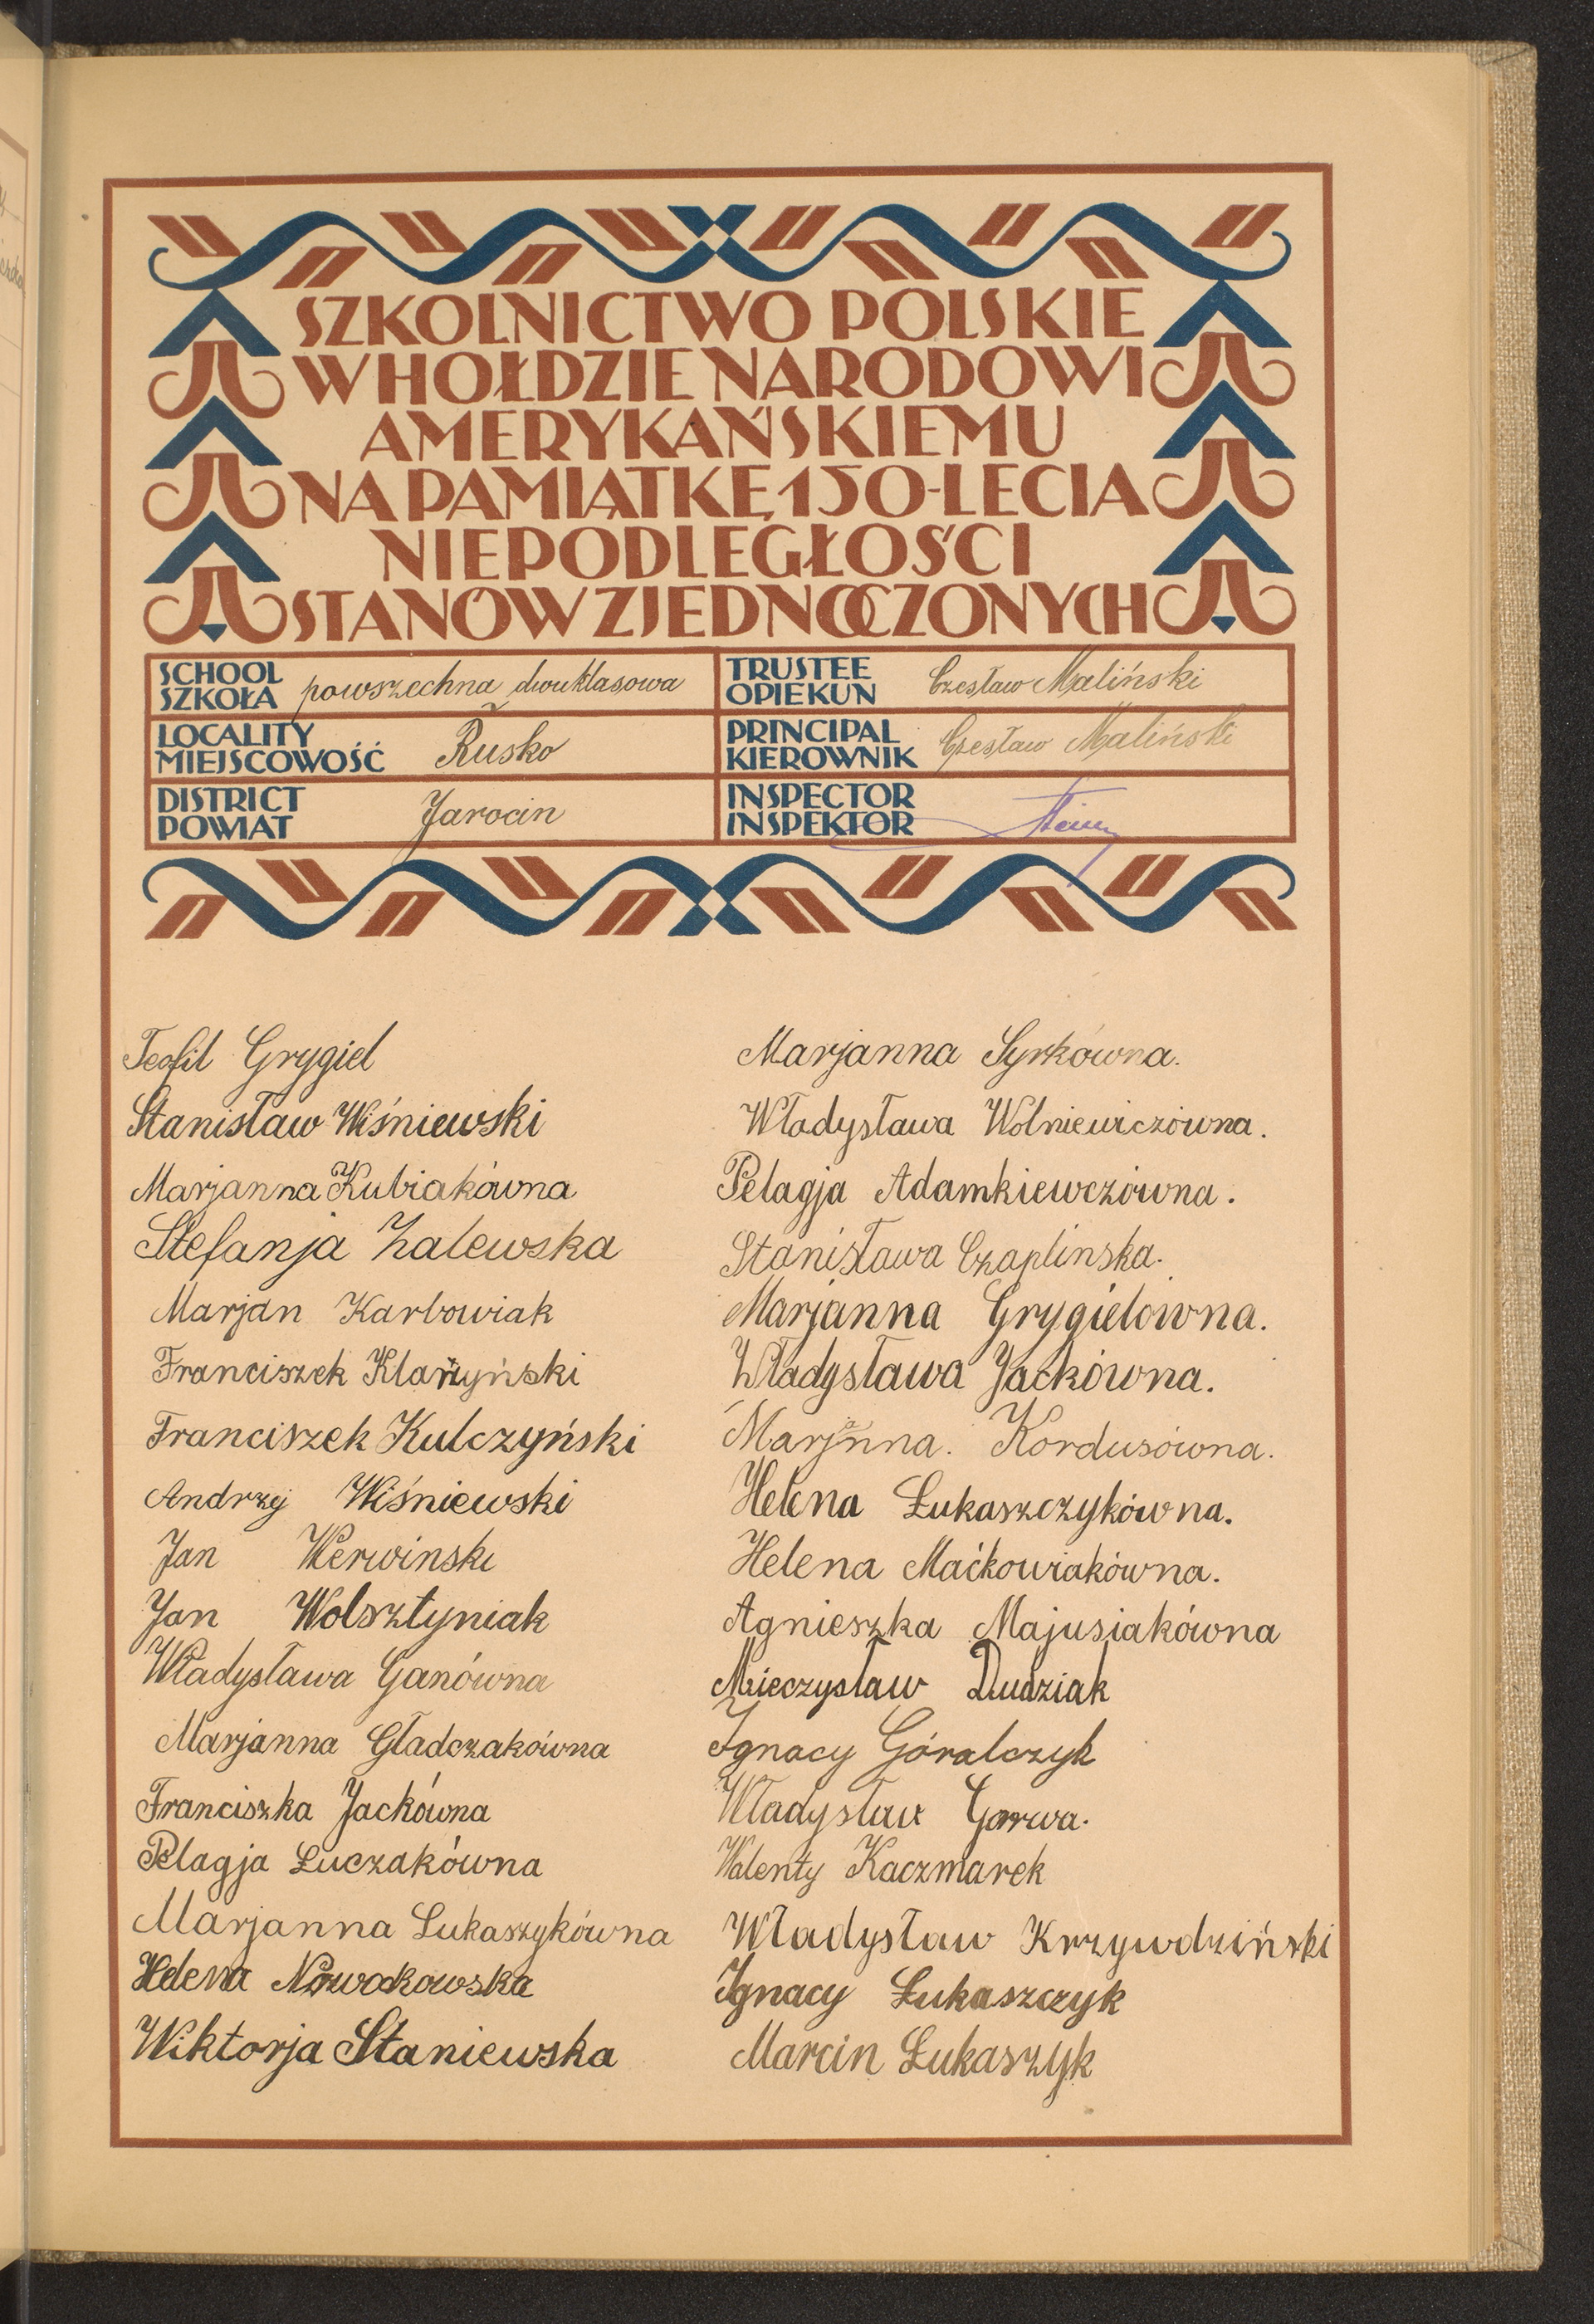 SZKOLNICTWO POLSKIE
W HOŁDZIE NARODOWI
AMERYKAŃSKIEMU
NA PAMIĄTKĘ 150-LECIA
NIEPODLEGŁOŚCI
STANÓW ZJEDNOCZONYCH
SCHOOL
SZKOŁA powszechna dwuklasowa
TRUSTEE
OPIEKUN Czesław Maliński
LOCALITY
MIEJSCOWOŚĆ Rusko
PRINCIPAL
KIEROWNIK Czesław Maliński
DISTRICT
POWIAT Jarocin
INSPECTOR
INSPEKTOR
Teofil Grygiel
Stanisław Wiśniewski
Marjanna Kubiakówna
Stefanja Zalewska
Marjan Karbowiak
Franciszek Klarzyński
Franciszek Kulczyński
Andrzej Wiśniewski
Jan Werwinski
Jan Wolsztyniak
Władysława Ganówna
Marjanna Gładczakówna
Franciszka Jackówna
Pelagja Łuczakówna
Marjanna Łukaszykówna
Helena Nowakowska
Wiktorja Staniewska
Marjanna Syrkówna.
Władysława Wolniewiczówna.
Pelagja Adamkiewczówna.
Stanisława Czaplinska.
Marjanna Grygielówna.
Władysława Jackówna.
Marjanna. Kordusówna.
Helena Łukaszczykówna.
Helena Maćkowiakówna.
Agnieszka Majusiakówna
Mieczysław Dudziak
Ignacy Góralczyk
Władysław Garwa.
Walenty Kaczmarek
Władysław Krzywdziński
Ignacy Łukaszczyk
Marcin Łukaszyk